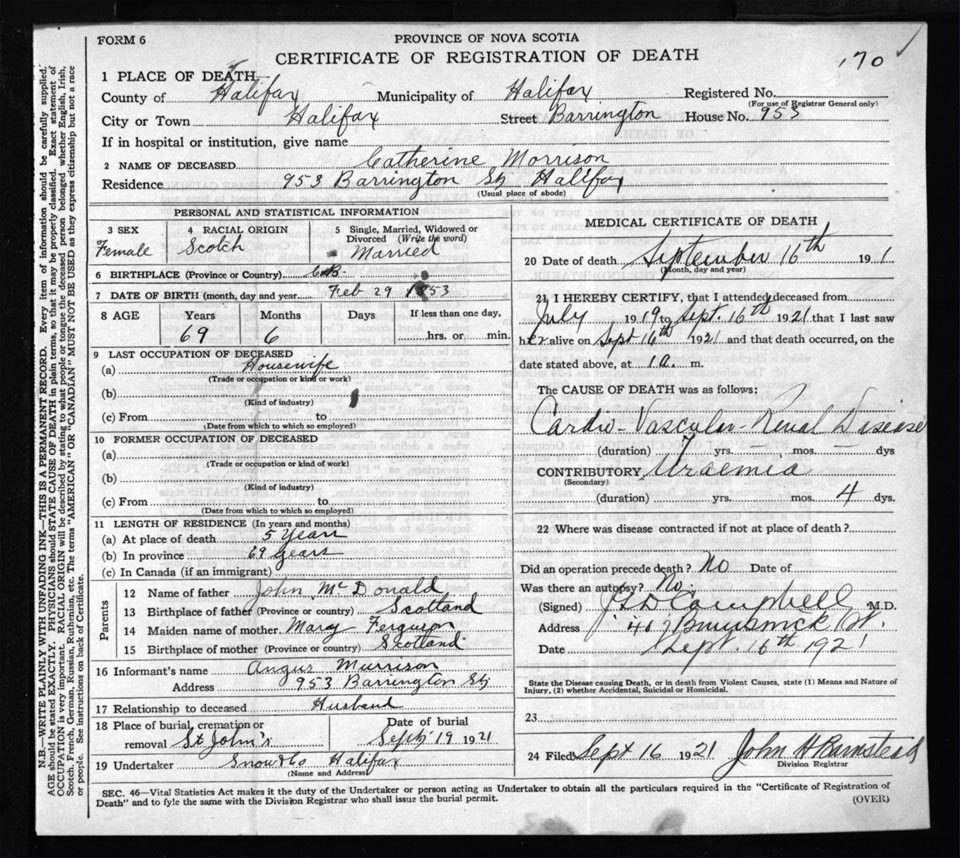 FORM 6
PROVINCE OF NOVA SCOTIA
CERTIFICATE OF REGISTRATION OF DEATH
170
1 PLACE OF DEATH
County of Halifax Municipality of Halifax Registered No.
(For use of Registrar General only)
City or Town Halifax Street Barrington House No. 953
If in hospital or institution, give name
2 NAME OF DECEASED Catherine Morrison
Residence 953 Barrington St, Halifax
(Usual place of abode)
PERSONAL AND STATISTICAL INFORMATION
3 SEX Female
4 RACIAL ORIGIN Scotch
5 Single, Married, Widowed or Divorced (Write the word) Married
6 BIRTHPLACE (Province or Country) C.B.
7 DATE OF BIRTH (month, day and year) Feb 29 1853
8 AGE Years Months Days If less than one day,
69 6 hrs. or min.
9 LAST OCCUPATION OF DECEASED
(a) Housewife
(Trade or occupation or kind or work)
(b)
(Kind of industry)
(c) From to
(Date from which to which so employed)
10 FORMER OCCUPATION OF DECEASED
(a)
(Trade or occupation or kind of work)
(b)
(Kind of industry)
(c) From to
(Date from which to which so employed)
11 LENGTH OF RESIDENCE (In years and months)
(a) At place of death 5 Years
(b) In province 69 Years
(c) In Canada (if an immigrant)
Parents
12 Name of father John McDonald
13 Birthplace of father (Province or country) Scotland
14 Maiden name of mother Mary Ferguson
15 Birthplace of mother (Province or country) Scotland
16 Informant's name Angus Murrison
Address 953 Barrington St,
17 Relationship to deceased Husband
18 Place of burial, cremation or removal St John's
Date of burial Sept, 19 1921
19 Undertaker Snow & Co Halifax
(Name and Address)
MEDICAL CERTIFICATE OF DEATH
20 Date of death September 16th 19 1
(Month, day and year)
21 I HEREBY CERTIFY, that I attended deceased from
July 1919 to Sept. 16th 1921 that I last saw
her alive on Sept 16th 1921 and that death occurred, on the
date stated above, at 1 a. m.
The CAUSE OF DEATH was as follows:
Cardio-Vascular-Renal Disease
(duration) yrs. mos. dys
CONTRIBUTORY Uraemia
(Secondary)
(duration) yrs. mos. 4 dys.
22 Where was disease contracted if not at place of death?
Did an operation precede death? No Date of
Was there an autopsy? No.
(Signed) Campbell M.D.
Address 407 Brunswick St.
Date Sept. 16th 1921
State the Disease causing Death, or in death from Violent Causes, state (1) Means and Nature of
Injury, (2) whether Accidental, Suicidal or Homicidal.
23
24 Filed Sept 16 1921 John H Barnstead
Division Registrar
SEC. 46—Vital Statistics Act makes it the duty of the Undertaker or person acting as Undertaker to obtain all the particulars required in the "Certificate of Registration of
Death" and to fyle the same with the Division Registrar who shall issue the burial permit.
(OVER)
N.B.—WRITE PLAINLY WITH UNFADING INK—THIS IS A PERMANENT RECORD. Every item of information should be carefully supplied.
AGE should be stated EXACTLY. PHYSICIANS should STATE CAUSE OF DEATH in plain terms, so that it may be properly classified. Exact statement of
OCCUPATION is very important. RACIAL ORIGIN will be described by stating to what people or tongue the deceased person belonged whether English, Irish,
Scotch, French, German, Russian, Ruthenian, etc. The terms "AMERICAN" OR "CANADIAN" MUST NOT BE USED as they express citizenship but not a race
or people. See instructions on back of Certificate.